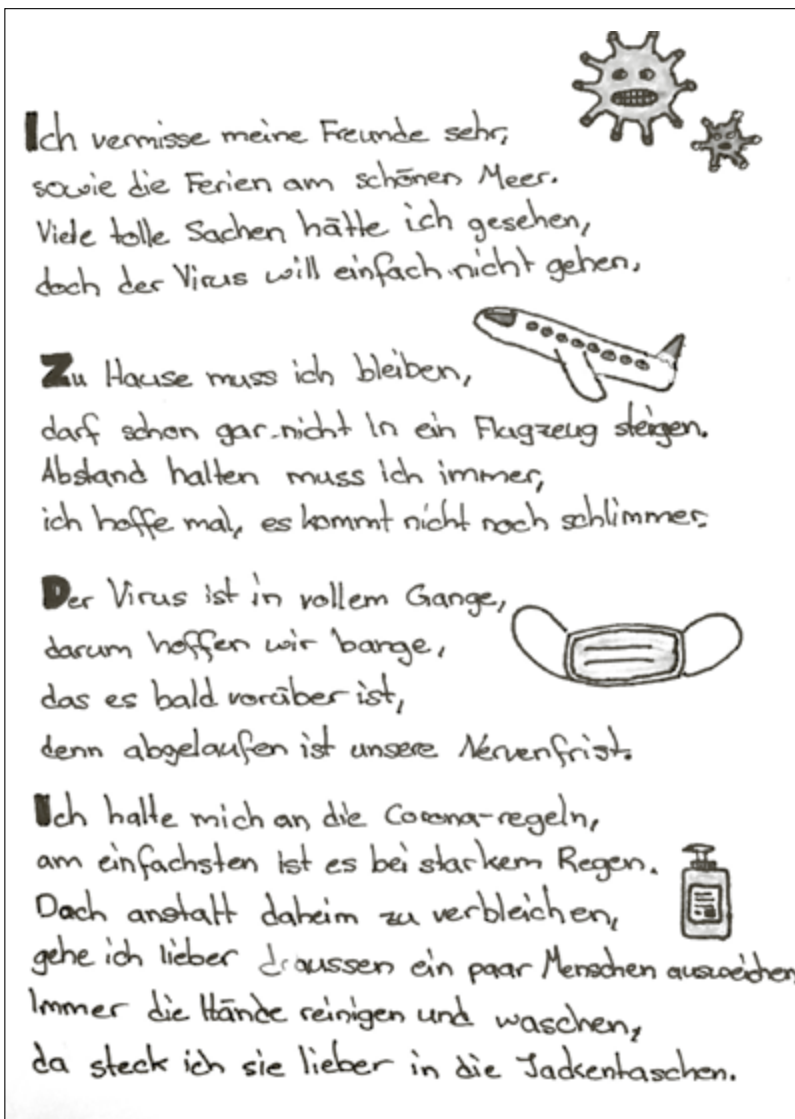 Ich vermisse meine Freunde sehr,
sowie die Ferien am schönen Meer.
Viele tolle Sachen hätte ich gesehen,
doch der Virus will einfach nicht gehen.
Zu Hause muss ich bleiben,
darf schon gar nicht in ein Flugzeug steigen.
Abstand halten muss ich immer,
ich hoffe mal, es kommt nicht noch schlimmer.
Der Virus ist in vollem Gange,
darum hoffen wir bange,
das es bald vorüber ist,
denn abgelaufen ist unsere Nervenfrist.
Ich halte mich an die Corona-regeln,
am einfachsten ist es bei starkem Regen.
Doch anstatt daheim zu verbleichen,
gehe ich lieber draussen ein paar Menschen ausweichen
Immer die Hände reinigen und waschen,
da steck ich sie lieber in die Jackentaschen.